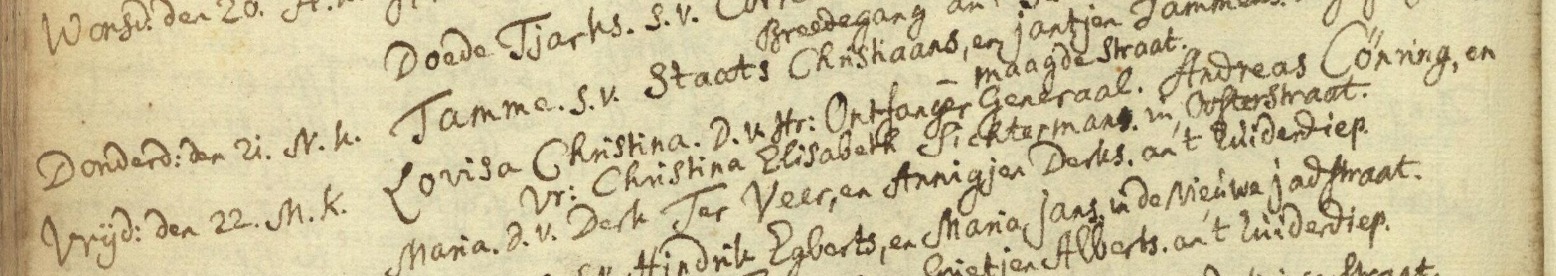 Wonsd: den 20.
Doede Tjarks. S. v.
Breedegang an
Tamme. S. v. Staats Christiaans, en jantjen Tammens.
– maagde straat.
Donderd: den 21. N. k. Lovisa Christina. D. v. Hr: Ontfanger Generaal. Andreas Cönring, en
Vr: Christina Elisabeth Sichtermans. in Oosterstraat.
Vrijd: den 22. M. k. Maria. D. v. Derk Ter Veer, en Annigjen Derks. an 't Zuiderdiep.
Hindrik Egberts, en Maria Jans. in de Nieuwe jadstraat.
Grietjen Alberts. an 't Zuiderdiep.
straat.